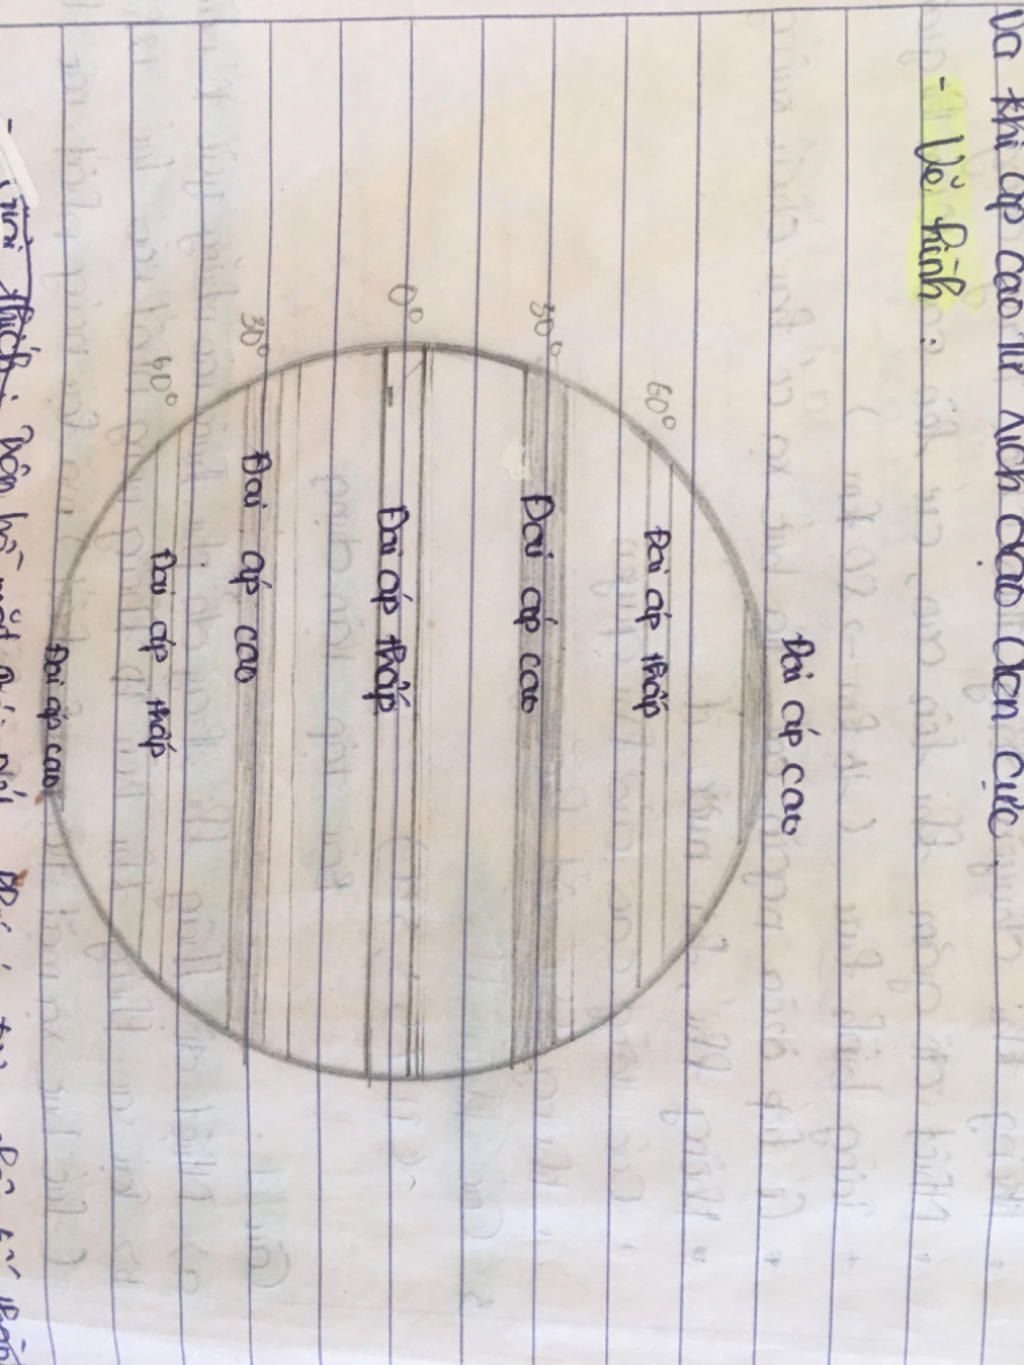 và khí áp cao từ xích đạo đến cực
- Vẽ hình:
Đai áp cao
60°
Đai áp thấp
30°
Đai áp cao
0°
Đai áp thấp
30°
Đai áp cao
60°
Đai áp thấp
Đai áp cao
- Giải thích: